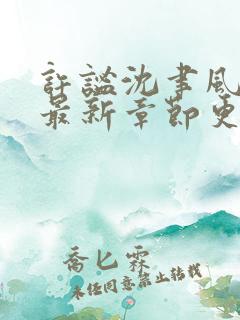 許謐沈聿風
最新章節更
喬匕霖
未经同意禁止转载